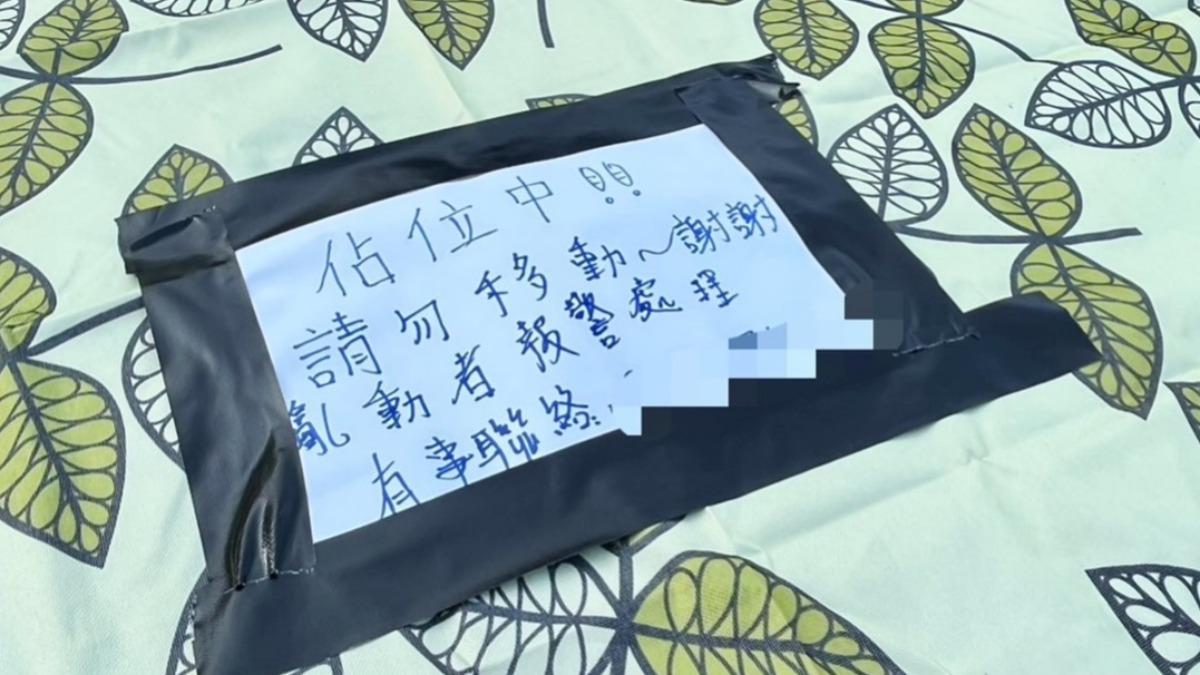 佔位中!!
請勿移動~謝謝
亂動者報警處理
有事聯絡: